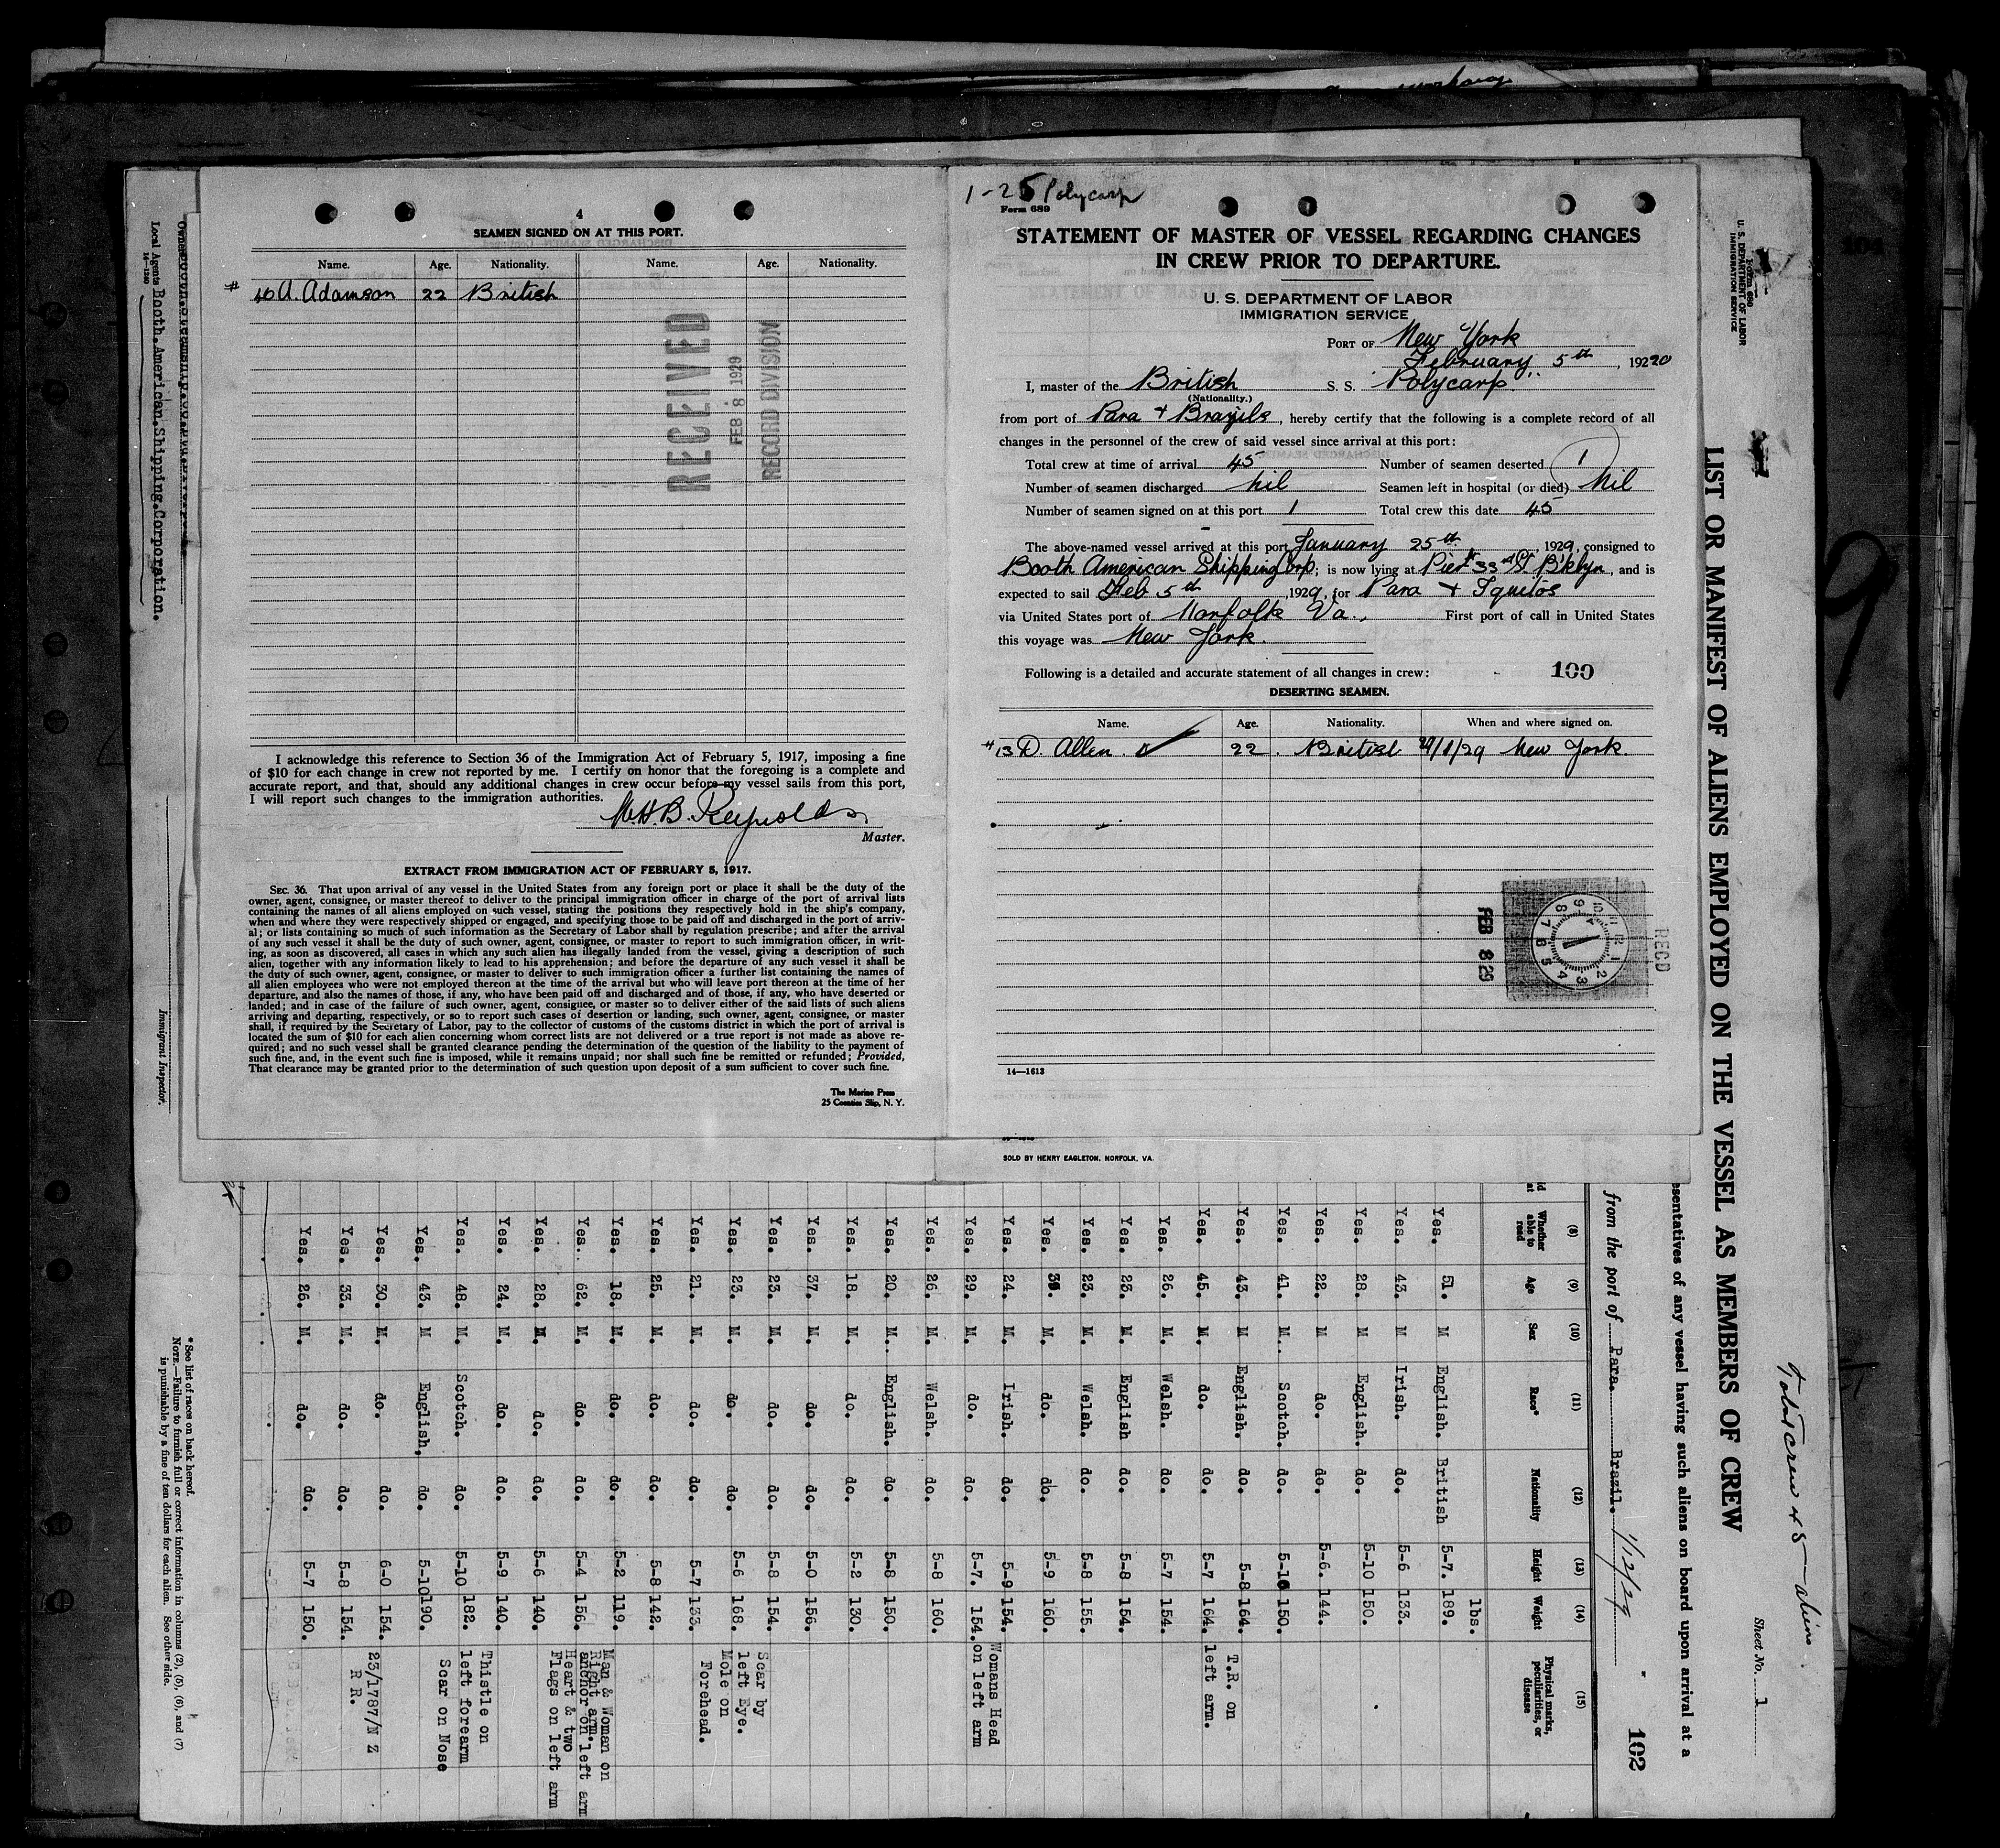 4
SEAMEN SIGNED ON AT THIS PORT.
Name. Age. Nationality. Name. Age. Nationality.
# 46 A. Adamson 22 British
RECEIVED
FEB 8 1929
RECORD DIVISION
I acknowledge this reference to Section 36 of the Immigration Act of February 5, 1917, imposing a fine
of $10 for each change in crew not reported by me. I certify on honor that the foregoing is a complete and
accurate report, and that, should any additional changes in crew occur before my vessel sails from this port,
I will report such changes to the immigration authorities.
Reynolds
Master.
EXTRACT FROM IMMIGRATION ACT OF FEBRUARY 5, 1917.
SEC. 36. That upon arrival of any vessel in the United States from any foreign port or place it shall be the duty of the
owner, agent, consignee, or master thereof to deliver to the principal immigration officer in charge of the port of arrival lists
containing the names of all aliens employed on such vessel, stating the positions they respectively hold in the ship's company,
when and where they were respectively shipped or engaged, and specifying those to be paid off and discharged in the port of arriv-
al; or lists containing so much of such information as the Secretary of Labor shall by regulation prescribe; and after the arrival
of any such vessel it shall be the duty of such owner, agent, consignee, or master to report to such immigration officer, in writ-
ing, as soon as discovered, all cases in which any such alien has illegally landed from the vessel, giving a description of such
alien, together with any information likely to lead to his apprehension; and before the departure of any such vessel it shall be
the duty of such owner, agent, consignee, or master to deliver to such immigration officer a further list containing the names of
all alien employees who were not employed thereon at the time of the arrival but who will leave port thereon at the time of her
departure, and also the names of those, if any, who have been paid off and discharged and of those, if any, who have deserted or
landed; and in case of the failure of such owner, agent, consignee, or master so to deliver either of the said lists of such aliens
arriving and departing, respectively, or so to report such cases of desertion or landing, such owner, agent, consignee, or master
shall, if required by the Secretary of Labor, pay to the collector of customs of the customs district in which the port of arrival is
located the sum of $10 for each alien concerning whom correct lists are not delivered or a true report is not made as above re-
quired; and no such vessel shall be granted clearance pending the determination of the question of the liability to the payment of
such fine, and, in the event such fine is imposed, while it remains unpaid; nor shall such fine be remitted or refunded; Provided,
That clearance may be granted prior to the determination of such question upon deposit of a sum sufficient to cover such fine.
The Marine Press
25 Coenties Slip, N. Y.
1-25 Polycarp
Form 689
STATEMENT OF MASTER OF VESSEL REGARDING CHANGES
IN CREW PRIOR TO DEPARTURE.
U. S. DEPARTMENT OF LABOR
IMMIGRATION SERVICE
PORT OF New York
February 5th, 192
I, master of the British S. S. Polycarp
(Nationality.)
from port of Para + , hereby certify that the following is a complete record of all
changes in the personnel of the crew of said vessel since arrival at this port:
Total crew at time of arrival 45 Number of seamen deserted 1
Number of seamen discharged nil Seamen left in hospital (or died) Nil
Number of seamen signed on at this port 1 Total crew this date 45
The above-named vessel arrived at this port January 25th, 1929, consigned to
Booth American Shipping Corp; is now lying at Pier 33rd St B'klyn, and is
expected to sail Feb 5th, 1929, for Para + Iquitos
via United States port of Norfolk Va., First port of call in United States
this voyage was New York.
Following is a detailed and accurate statement of all changes in crew: - 100
DESERTING SEAMEN.
Name. Age. Nationality. When and where signed on.
#13 D. Allen 22. British /1/29 New York.
RECD
FEB 8 29
14—1613
SOLD BY HENRY EAGLETON, NORFOLK, VA.
Local Agents Booth. American. Shipping. Corporation.
14—1240
Immigrant Inspector.
*See list of races on back hereof.
NOTE.—Failure to furnish full or correct information in columns (2), (5), (6), and (7)
is punishable by a fine of ten dollars for each alien. See other side.
Form 680
U. S. DEPARTMENT OF LABOR
IMMIGRATION SERVICE
LIST OR MANIFEST OF ALIENS EMPLOYED ON THE VESSEL AS MEMBERS OF CREW
Total crew 45 aliens
Sheet No. 1
sentatives of any vessel having such aliens on board upon arrival at a
from the port of Para. Brazil. 1/12/29
102
(8) (9) (10) (11) (12) (13) (14) (15)
Whether able to read Age Sex Race* Nationality Height Weight Physical marks, peculiarities, or disease
lbs.
Yes. 51. M English. British 5-7. 189.
Yes. 43. M Irish. do. 5-6 133.
Yes. 28. M English. do. 5-10 150.
Yes. 22. M do. do. 5-6. 144.
Yes. 41. M. Scotch. do. 150.
Yes. 43. M English. do. 5-8 164.
Yes. 45. M. do. do. 5-7 164. T.R. on left arm.
Yes. 26. M. Welsh. do. 5-7 154.
Yes. 23. M. English do. 5-8 154.
Yes. 23. M. Welsh. do. 5-8 155.
Yes. M. do. do. 5-9 160.
Yes. 24. M. Irish. do. 5-9 154.
Yes. 29. M. do. do. 5-7. 154. Womans Head on left arm
Yes. 26. M. Welsh. do. 5-8 160.
Yes. 20. M. English. do. 5-8 150.
Yes. 18. M. do. do. 5-2 130.
Yes. 37. M. do. do. 5-0 156.
Yes. 23. M. do. do. 5-8 154. Scar by left Eye.
Yes. 23. M. do. do. 5-6 168. Mole on Forehead.
Yes. 21. M. do. do. 5-7 133.
Yes. 25. M. do. do. 5-8 142.
Yes. 18. M. do. do. 5-2 119. Man & Woman on Right arm.
Yes. 62. M. do. do. 5-4 156. anchor on left arm
Yes. 28. M. do. do. 5-6 140. Heart & two Flags on left arm
Yes. 24. M. do. do. 5-9 140.
Yes. 48. M. Scotch. do. 5-10 182. Thistle on left forearm
Yes. 43. M English. do. 5-10 190. Scar on Nose
Yes. 30. M. do. do. 6-0 154. 23/1787/N Z
Yes. 33. M. do. do. 5-8 154. R R.
Yes. 26. M. do. do. 5-7 150.
9